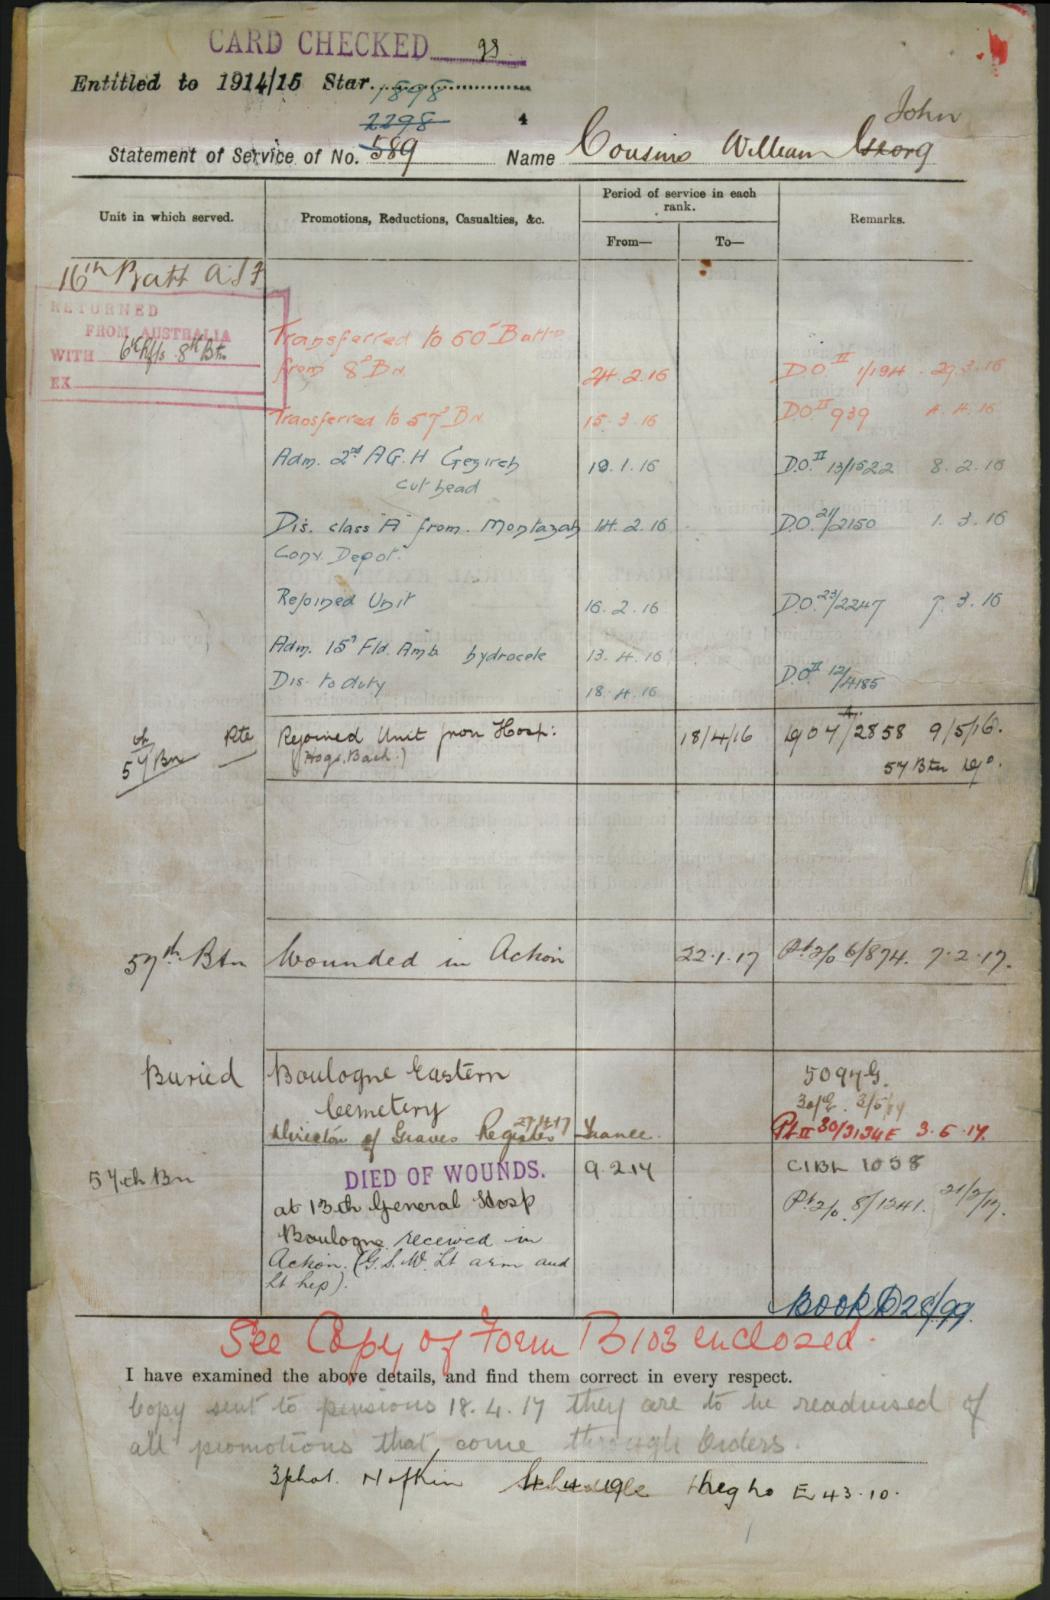 CARD CHECKED
Entitled to 1914/15 Star 1898
2298
Statement of Service of No. 589 Name Cousins William Georg John
Unit in which served. Promotions, Reductions, Casualties, &c. Period of service in each rank. From— To— Remarks.
16th Batt A.I.F
RETURNED
FROM AUSTRALIA
WITH 6th Rfts 8th Btn
EX
Transferred to 60 Battn
from 8 Bn 24.2.16 D.O. II 1/194 29.3.16
Transferred to 57 Bn 15.3.16 D.O. II 939 4.4.16
Adm. 2nd A.G.H Gezireh 19.1.16 D.O. II 13/1522 8.2.16
cut head
Dis. class "A" from Montazah 14.2.16 D.O. 21/2150 1.3.16
Conv. Depot.
Rejoined Unit 16.2.16 D.O. 23/2247 7.3.16
Adm. 15 Fld. Amb. hydrocele 13.4.16
Dis. to duty 18.4.16 D.O. II 12/4185
57th Bn Pte Rejoined Unit from Hosp: 18/4/16 /2858 9/5/16.
57 Btn
57th Btn Wounded in Action 22.1.17 Pt 2/o 6/874. 7.2.17.
Buried Boulogne Eastern 5097G.
Cemetery
Director of Graves Register 27/4/17 France. Pt II 30/3134E 3.5.17.
57th Bn DIED OF WOUNDS. 9.2.17 C1BL 1058
at 13th General Hosp Pt 2/o. 8/1241. 21/2/17.
Boulogne received in
Action. (G.S.W. Lt arm and
Lt hip).
Book D 28/99.
See Copy of Form B103 enclosed.
I have examined the above details, and find them correct in every respect.
Copy sent to pensions 18.4.17 they are to be readvised of
all promotions that come through Orders.
3phot. E 43.10.